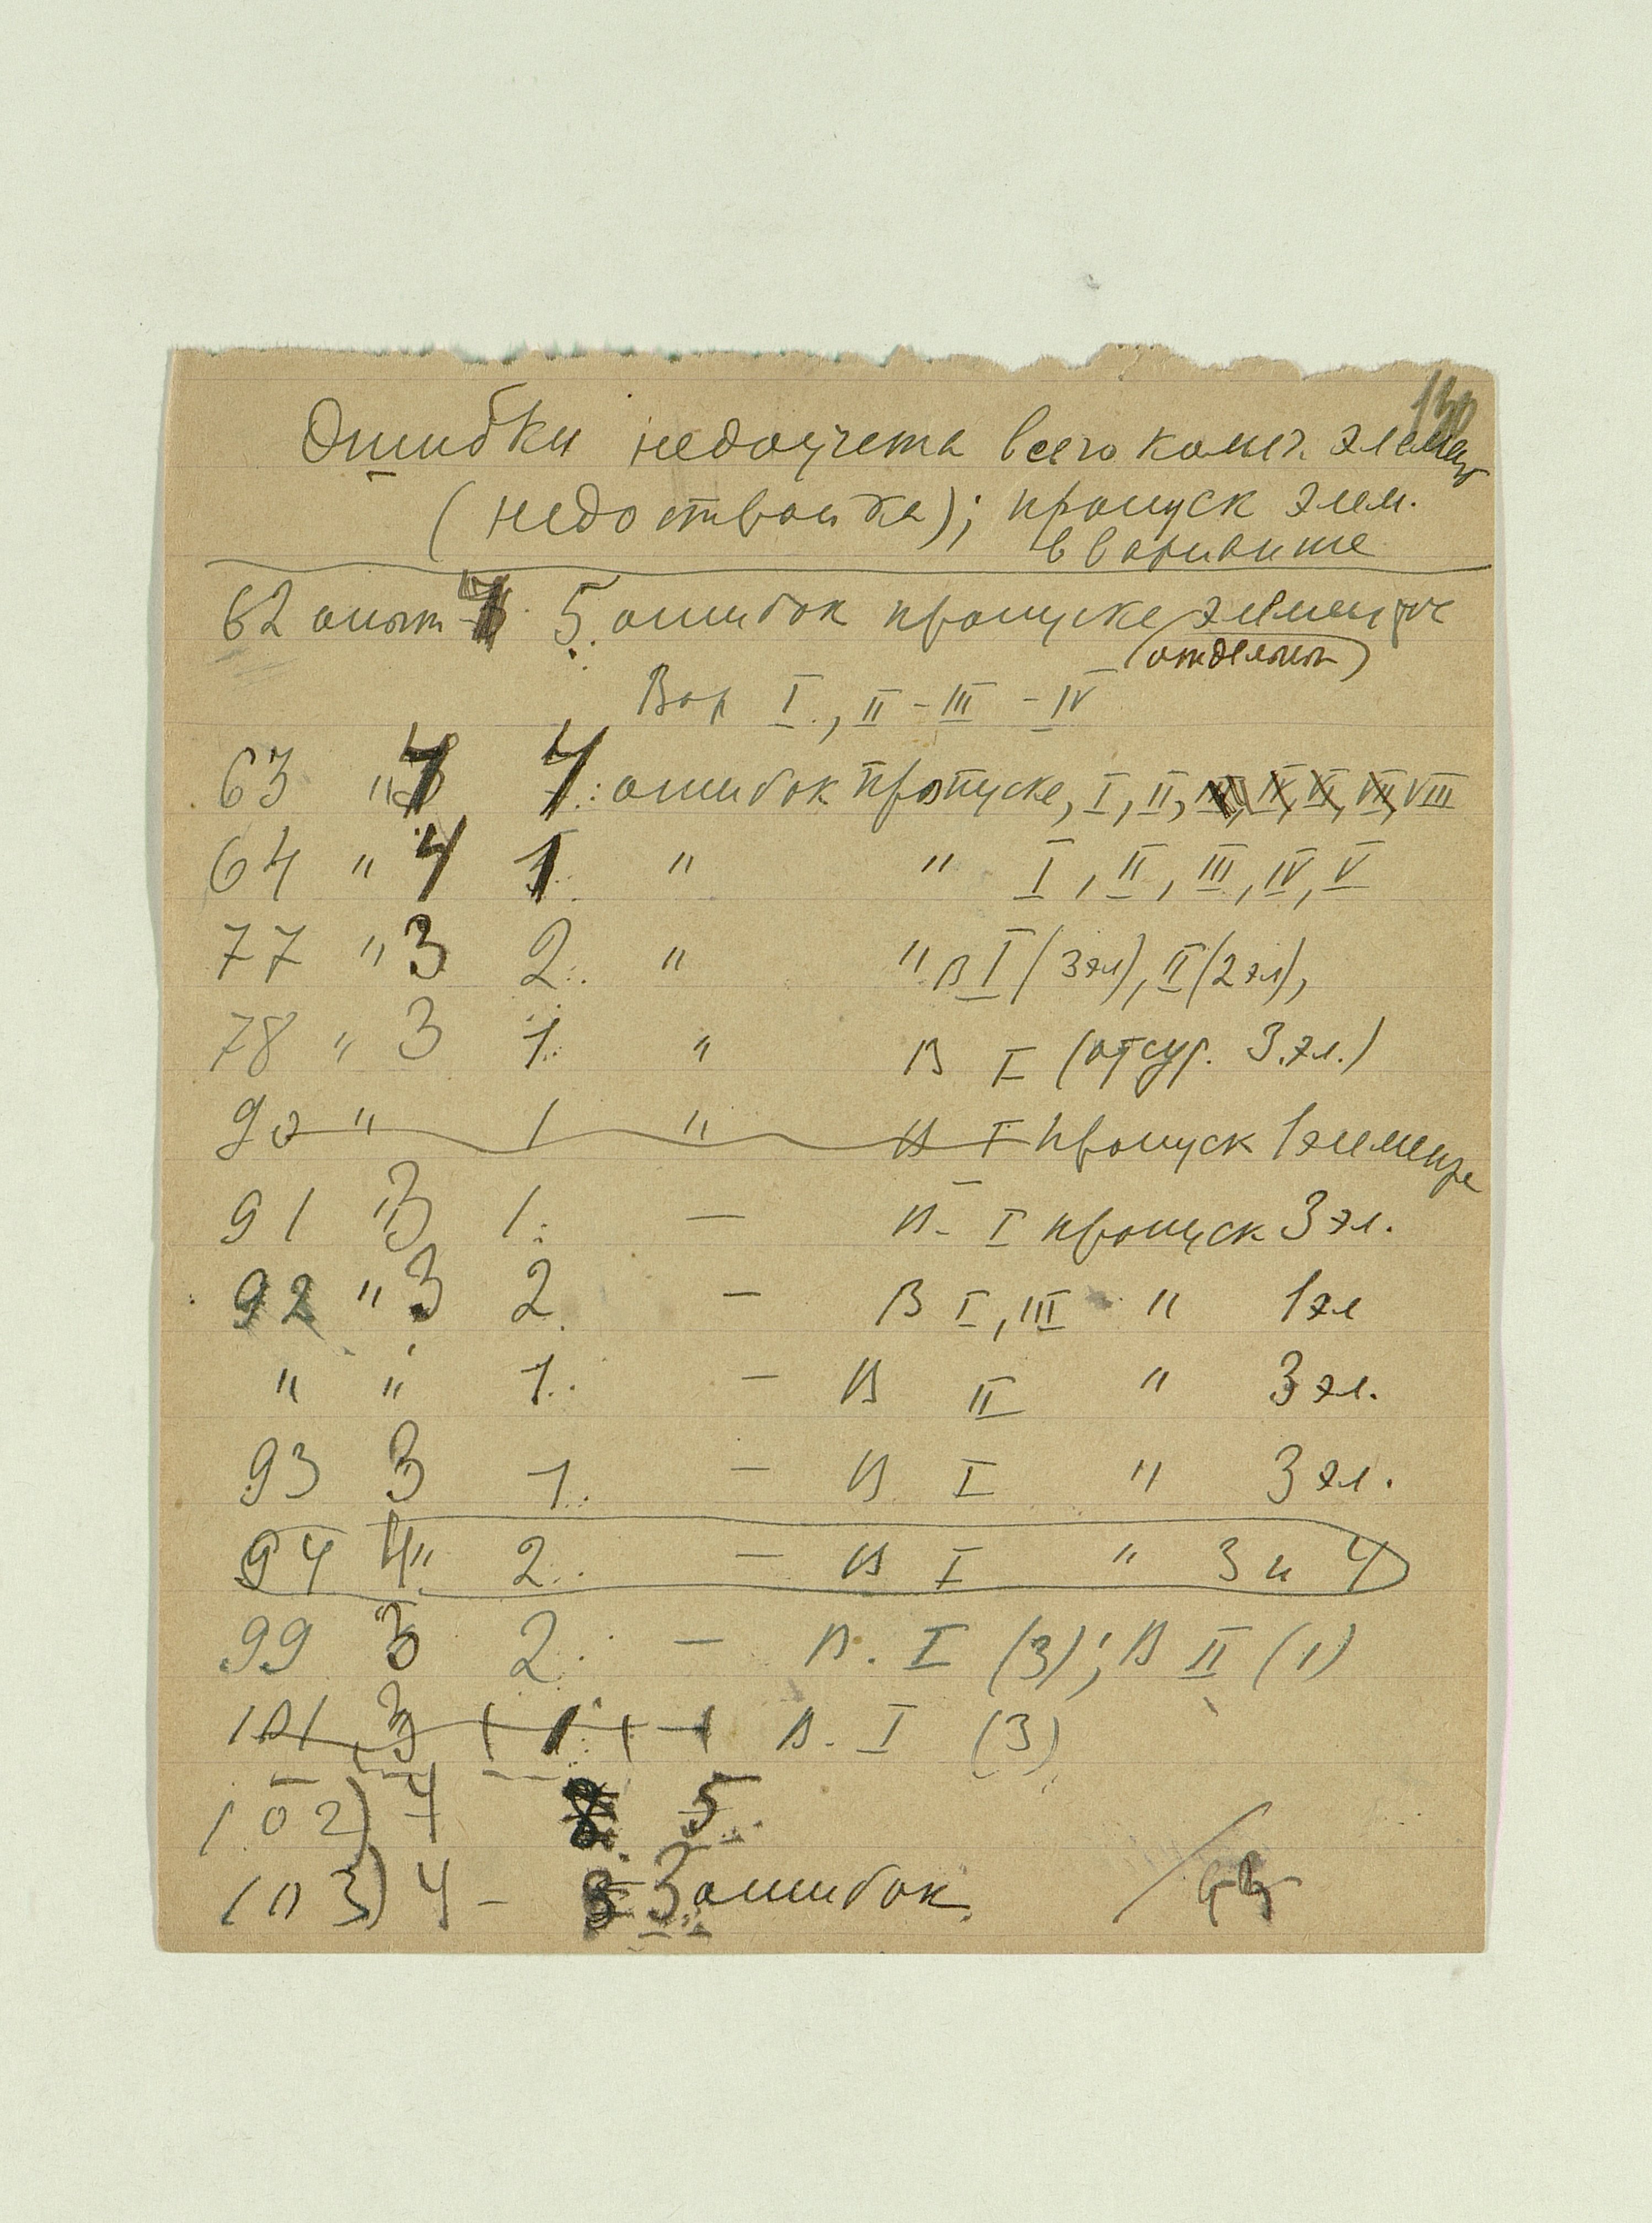 130
Ошибки недоучета всего колич. элемен
(недостройка); пропуск элем.
в варианте
62 опыт 5. ошибок пропуске элементе
(отдельн)
Вар I., II - III - IV
63 " 4 4: ошибок пропуске, I, II, VIII
64 " 4 1 " " I, II, III, IV, V
77 " 3 2. " " В I (3 эл), II (2 эл),
78 " 3 1. " В I (отсут. 3 эл.)
90 " 1 " В I пропуск 1 элемента
91 " 3 1. — В. I пропуск 3 эл.
92 " 3 2. — В I, III " 1 эл
" " 1. — В II " 3 эл.
93 3 1. — В I " 3 эл.
94 4 " 2. — В I " 3 и 4
99 3 2. — В. I (3); В II (1)
101 3 1 В. I (3)
102) 4 5
103) 4 - 3 ошибок.